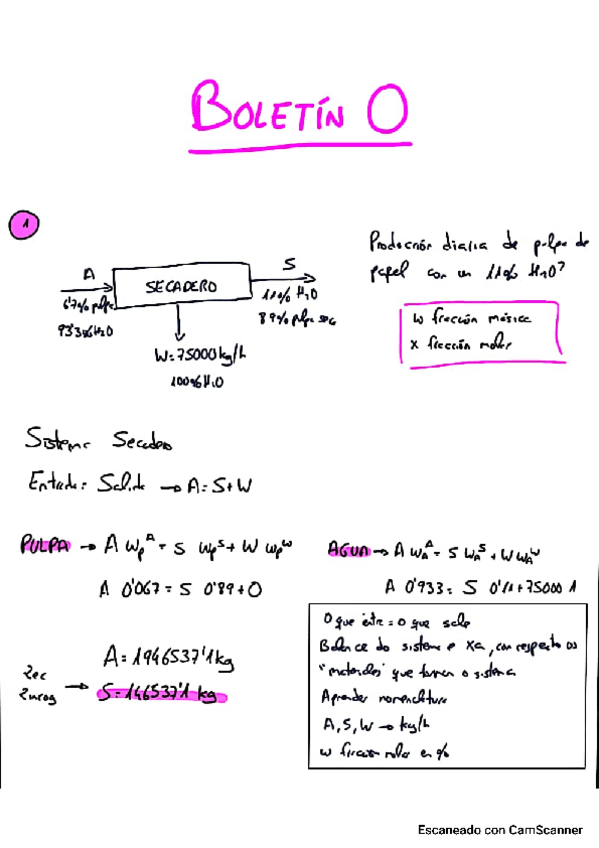 BOLETÍN 0
1
A
S
SECADERO
6'7% pulpa
93'3% H2O
11% H2O
89% pulpa sec
W = 75000 kg/h
100% H2O
Producción diaria de pulpa de
papel con un 11% H2O?
w fracción másica
x fracción molar
Sistema Secadero
Entrada = Salida → A = S + W
PULPA → A wpᴬ = S wpˢ + W wpᵂ
A 0'067 = S 0'89 + 0
AGUA → A wAᴬ = S wAˢ + W wAᵂ
A 0'933 = S 0'11 + 75000 1
2 ec
2 incog →
A = 1946537'1 kg
S = 146537'1 kg
O que entra = o que sale
Balance do sistema e xa, con respecto os
"materiales" que forman o sistema
Aprender nomenclatura
A, S, W → kg/h
w fracción molar en %
Escaneado con CamScanner